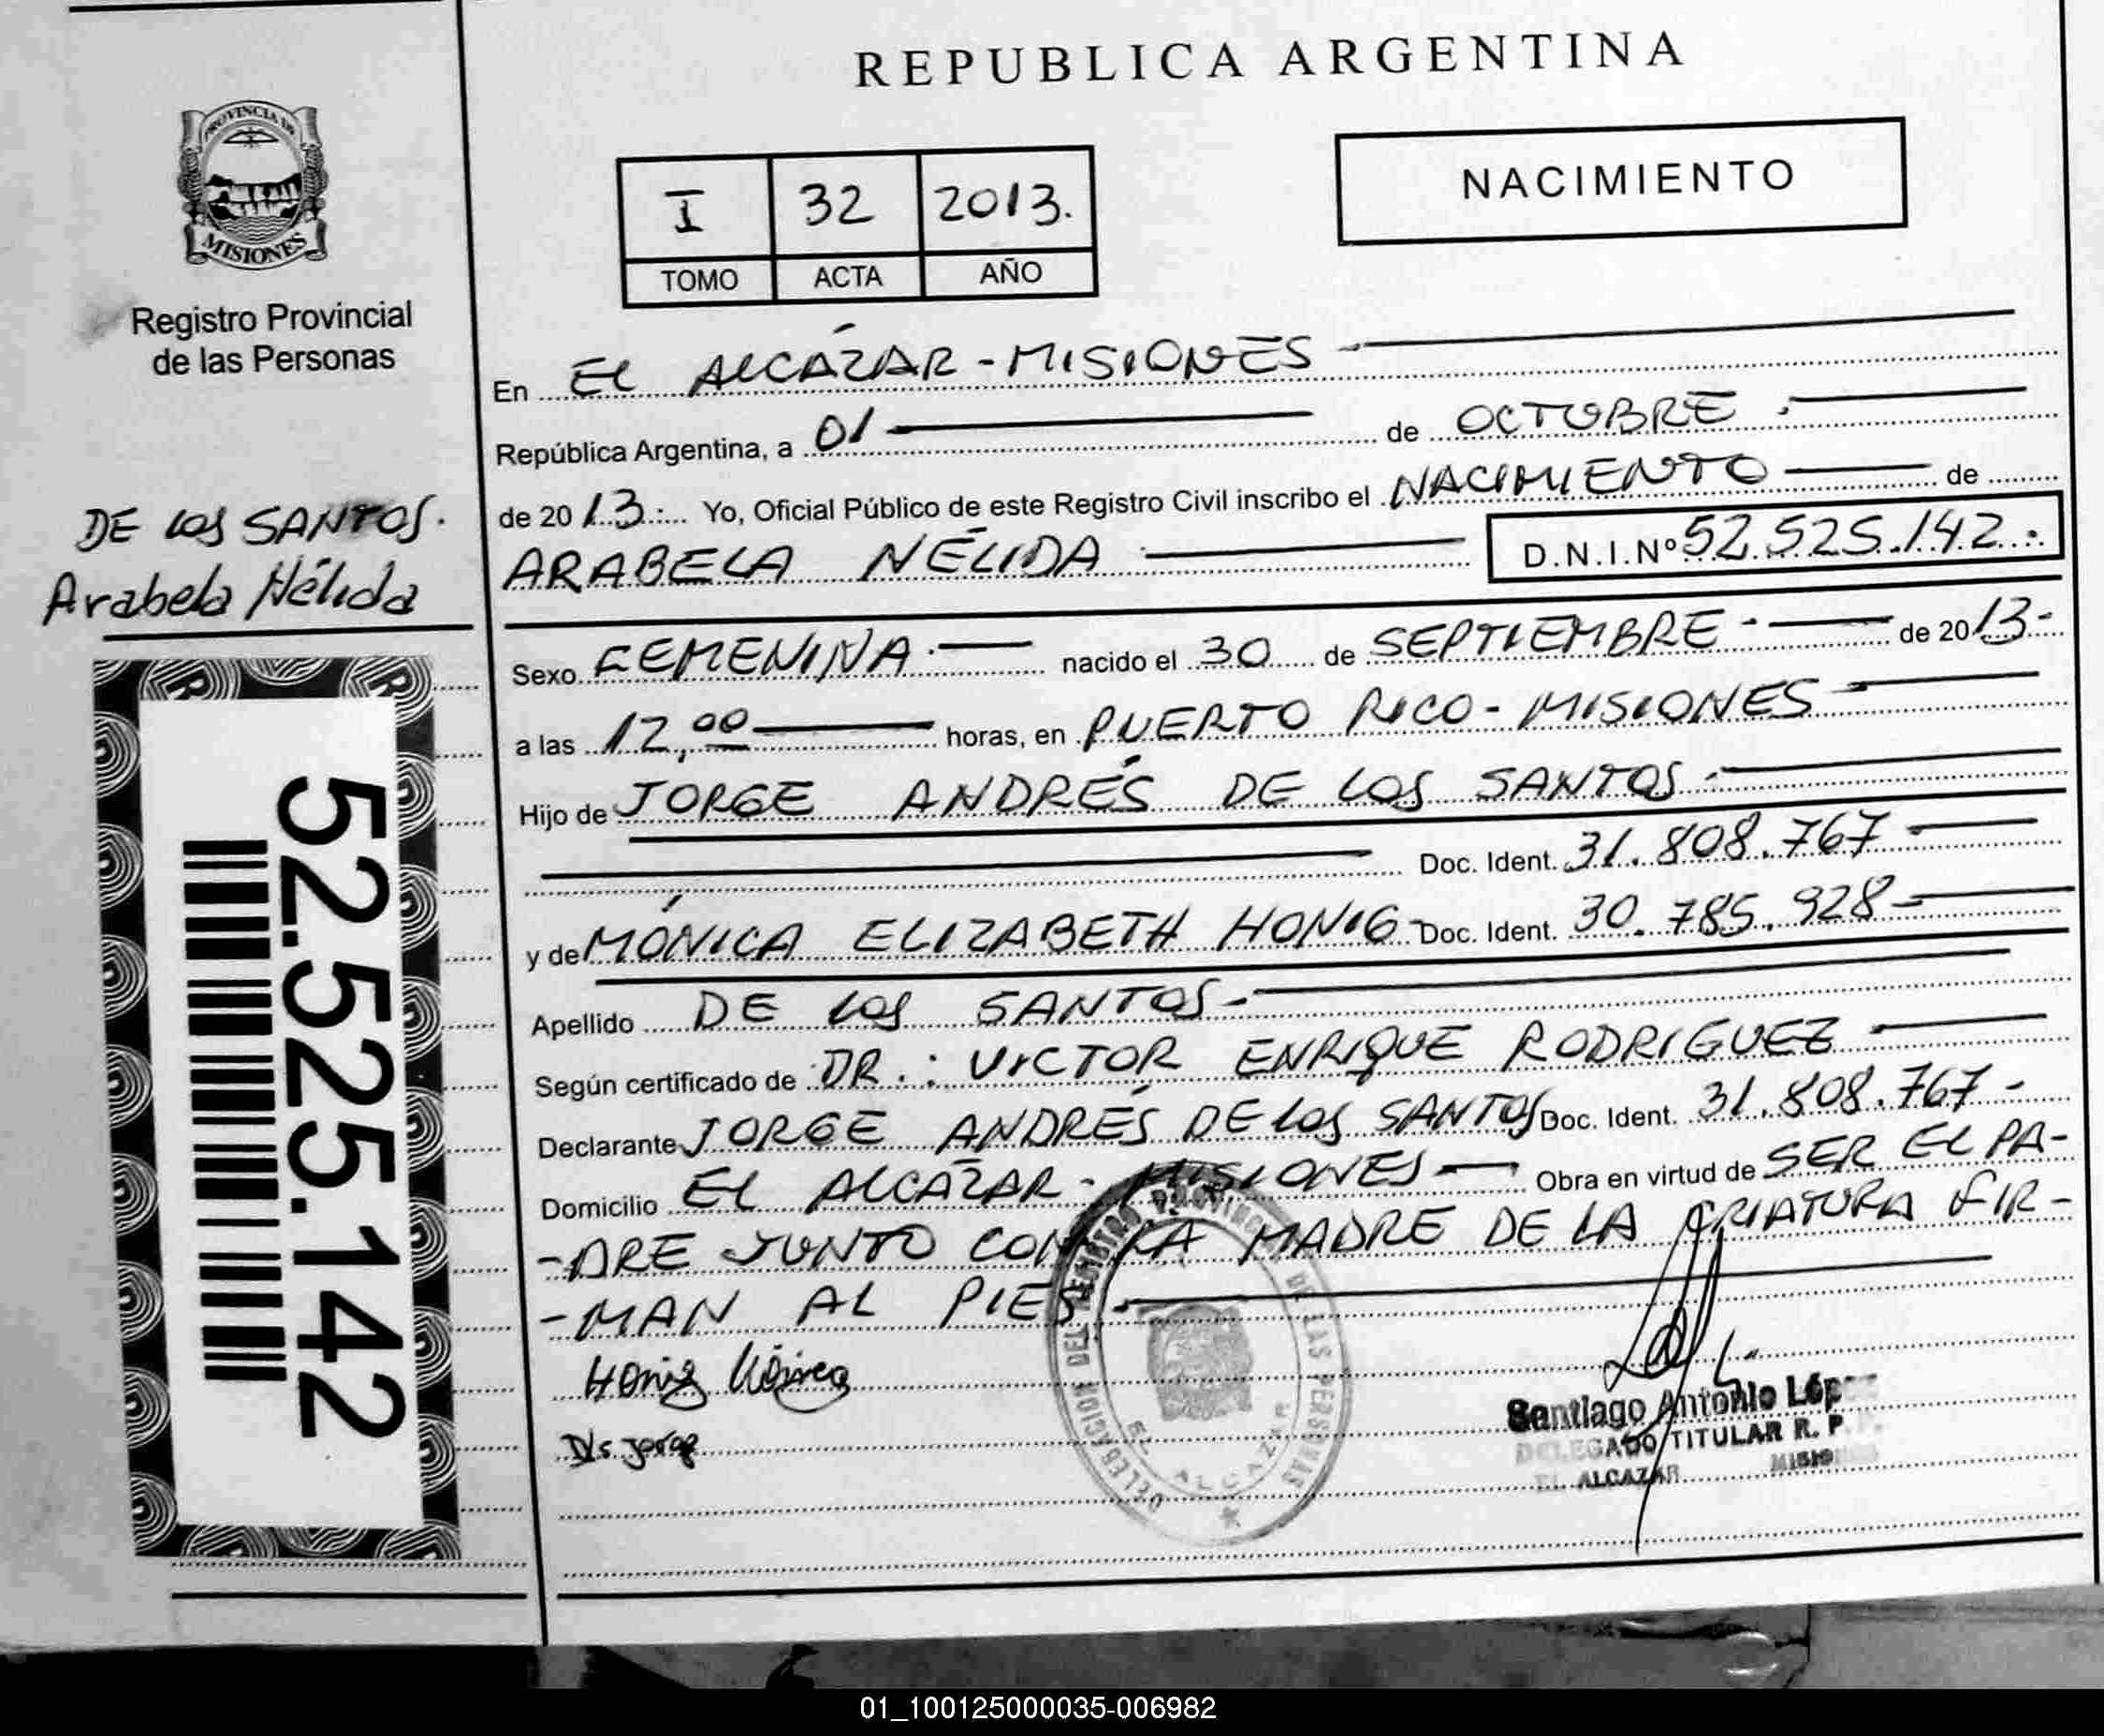 REPUBLICA ARGENTINA
PROVINCIA DE
MISIONES
Registro Provincial
de las Personas
I 32 2013.
TOMO ACTA AÑO
NACIMIENTO
DE LOS SANTOS.
Arabela Nélida
52.525.142
En EL ALCÁZAR - MISIONES
República Argentina, a 01 de OCTUBRE.
de 2013. Yo, Oficial Público de este Registro Civil inscribo el NACIMIENTO de
ARABELA NÉLIDA D.N.I.Nº 52.525.142.
Sexo FEMENINA. nacido el 30 de SEPTIEMBRE de 2013-
a las 12,00 horas, en PUERTO RICO - MISIONES
Hijo de JORGE ANDRÉS DE LOS SANTOS.
Doc. Ident. 31.808.767
y de MÓNICA ELIZABETH HONIG Doc. Ident. 30.785.928
Apellido DE LOS SANTOS-
Según certificado de DR.: VICTOR ENRIQUE RODRIGUEZ
Declarante JORGE ANDRÉS DE LOS SANTOS Doc. Ident. 31.808.767-
Domicilio EL ALCÁZAR - MISIONES Obra en virtud de SER EL PA-
-DRE JUNTO CON LA MADRE DE LA CRIATURA FIR-
-MAN AL PIE
Honig Mónica
Jorge
DELEGACION DEL REGISTRO PROVINCIAL DE LAS PERSONAS
EL ALCAZAR
Santiago Antonio López
DELEGADO TITULAR R. P.
EL ALCAZAR MISIONES
01_100125000035-006982